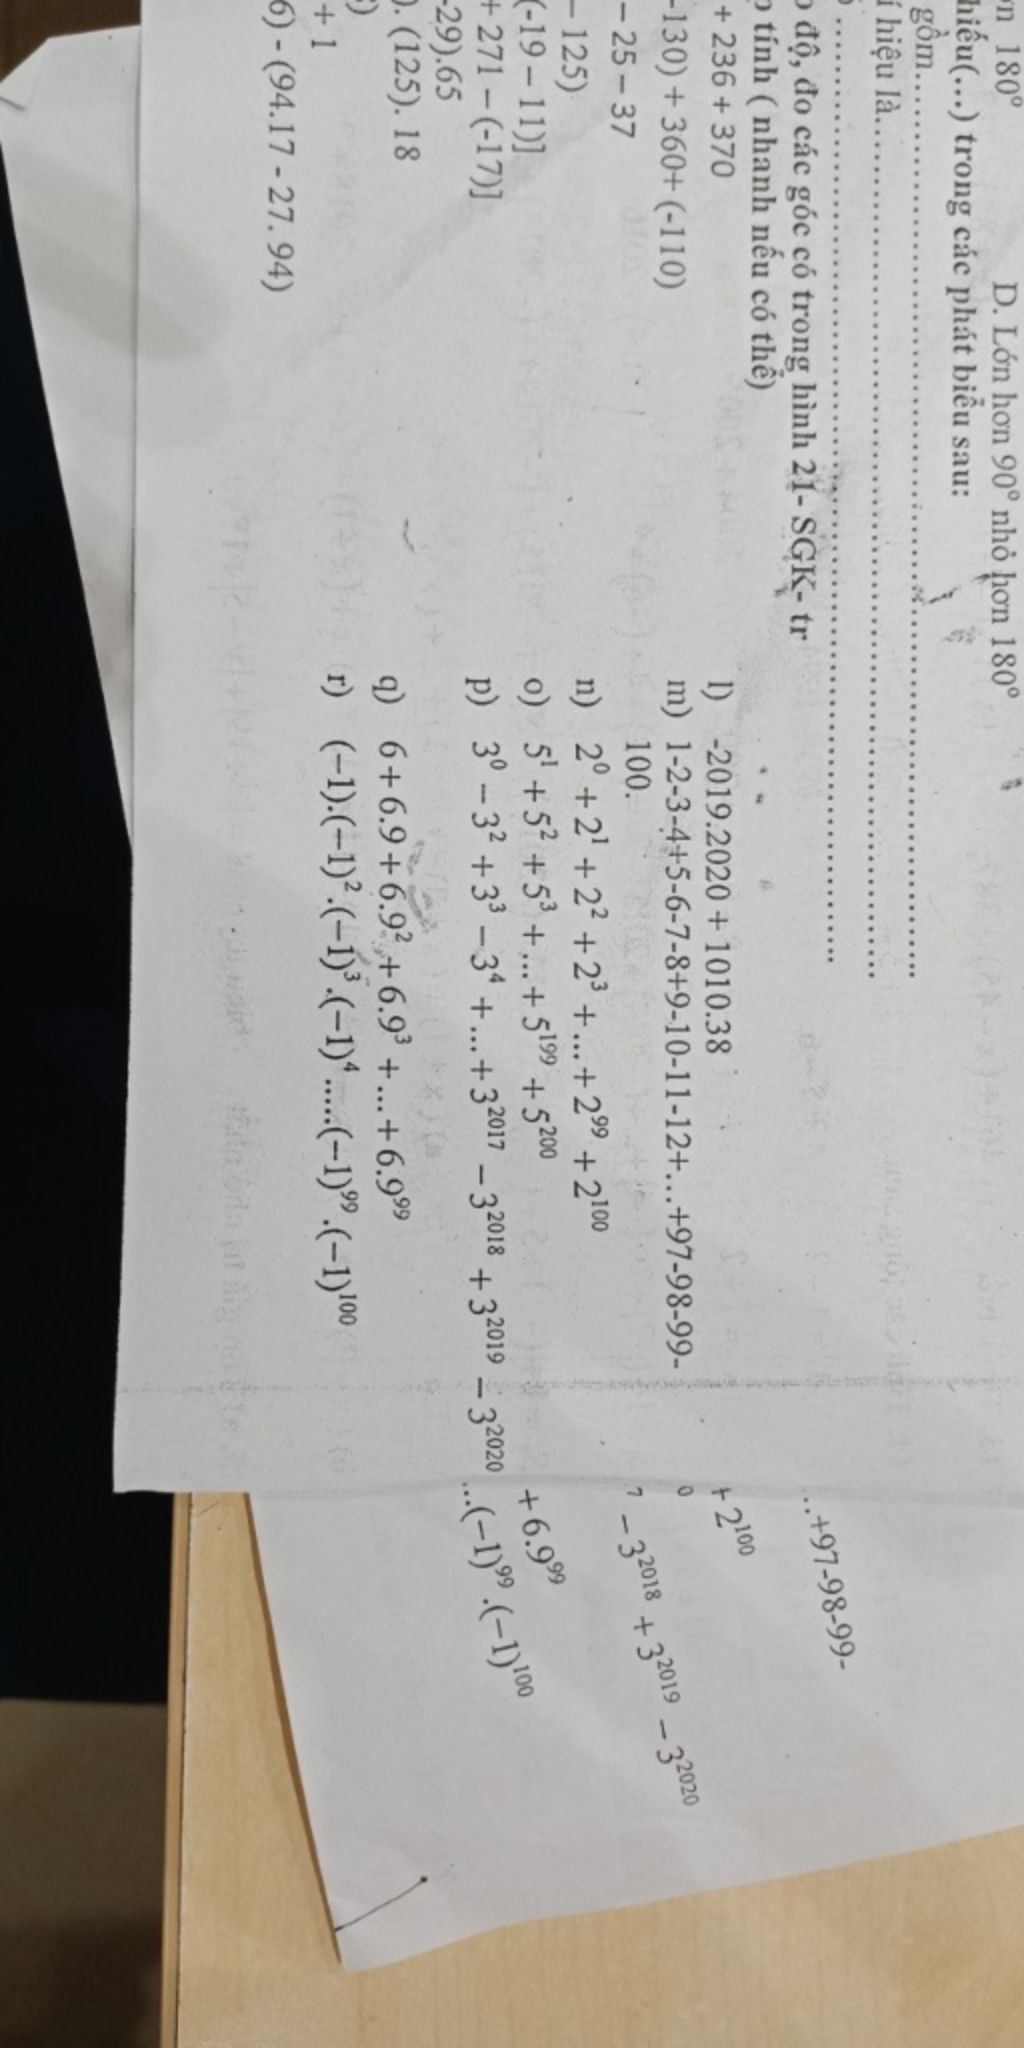 ơn 180° D. Lớn hơn 90° nhỏ hơn 180°
hiếu(...) trong các phát biểu sau:
gồm..............................................................
í hiệu là..............................................................
..............................................................
độ, đo các góc có trong hình 21- SGK- tr
tính ( nhanh nếu có thể)
+ 236 + 370
-130) + 360+ (-110)
– 25 – 37
– 125)
(-19 – 11)]
+ 271 – (-17)]
-29).65
). (125). 18
+ 1
6) - (94.17 - 27. 94)
l) -2019.2020 + 1010.38
m) 1-2-3-4+5-6-7-8+9-10-11-12+…+97-98-99-
100.
n) 2⁰ + 2¹ + 2² + 2³ + ... + 2⁹⁹ + 2¹⁰⁰
o) 5¹ + 5² + 5³ + ... + 5¹⁹⁹ + 5²⁰⁰
p) 3⁰ – 3² + 3³ – 3⁴ + ... + 3²⁰¹⁷ – 3²⁰¹⁸ + 3²⁰¹⁹ – 3²⁰²⁰
q) 6 + 6.9 + 6.9² + 6.9³ + ... + 6.9⁹⁹
r) (–1).(–1)².(–1)³.(–1)⁴.....(–1)⁹⁹.(–1)¹⁰⁰
...+97-98-99-
+ 2¹⁰⁰
0
⁷ – 3²⁰¹⁸ + 3²⁰¹⁹ – 3²⁰²⁰
+ 6.9⁹⁹
...(–1)⁹⁹.(–1)¹⁰⁰